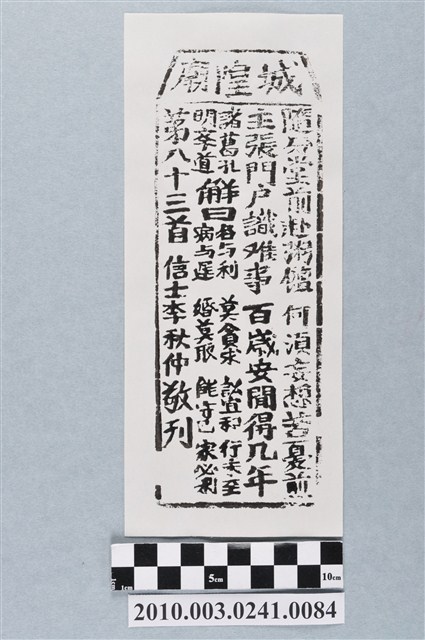 城隍廟
隨分堂前赴粥饘 何須妄想苦憂前
主張門户識难事 百歲安閒得几年
諸葛孔
明斈道
解曰
名与利 莫貪求 訟宜和 行未至
病与遲 婚莫取 能守已 家必利
第八十三首 信士李秋仲敬刊
1cm 5cm 10cm
2010.003.0241.0084